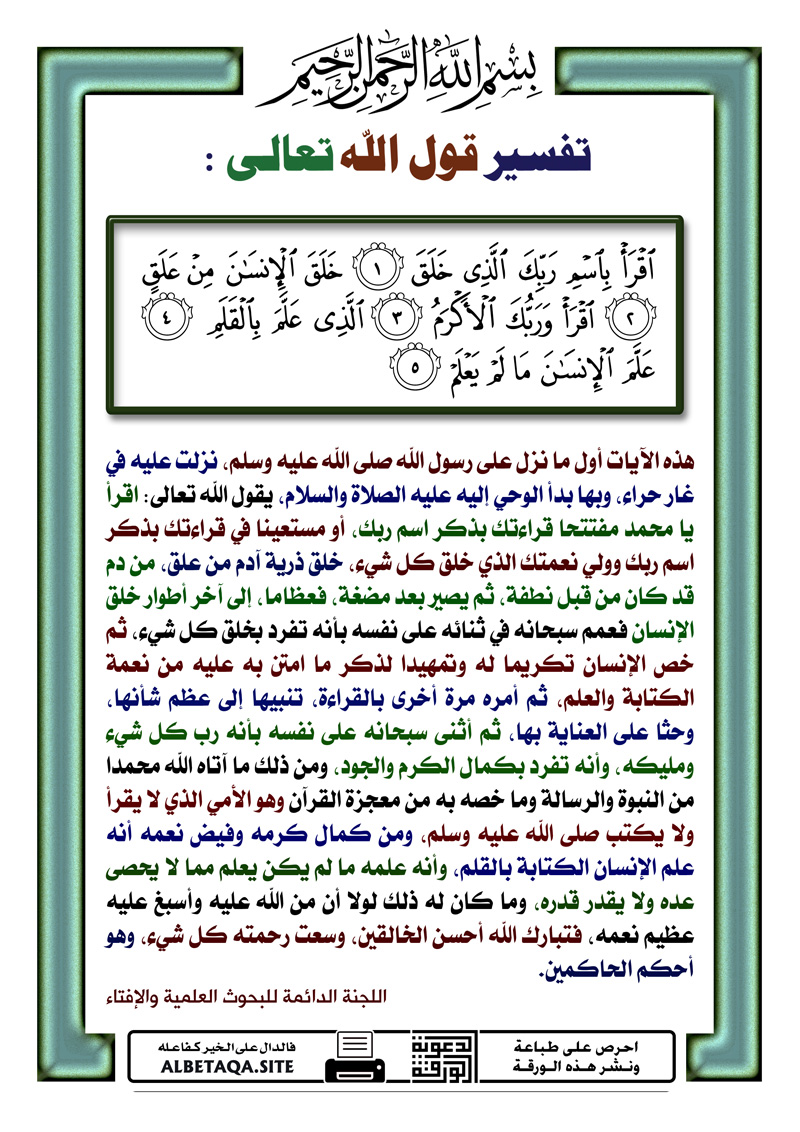 بِسْمِ اللَّهِ الرَّحْمَٰنِ الرَّحِيمِ
تفسير قول الله تعالى :
ٱقْرَأْ بِٱسْمِ رَبِّكَ ٱلَّذِى خَلَقَ ١ خَلَقَ ٱلْإِنسَٰنَ مِنْ عَلَقٍ
٢ ٱقْرَأْ وَرَبُّكَ ٱلْأَكْرَمُ ٣ ٱلَّذِى عَلَّمَ بِٱلْقَلَمِ ٤
عَلَّمَ ٱلْإِنسَٰنَ مَا لَمْ يَعْلَمْ ٥
هذه الآيات أول ما نزل على رسول الله صلى الله عليه وسلم، نزلت عليه في
غار حراء، وبها بدأ الوحي إليه عليه الصلاة والسلام، يقول الله تعالى: اقرأ
يا محمد مفتتحا قراءتك بذكر اسم ربك، أو مستعينا في قراءتك بذكر
اسم ربك وولي نعمتك الذي خلق كل شيء، خلق ذرية آدم من علق، من دم
قد كان من قبل نطفة، ثم يصير بعد مضغة، فعظاما، إلى آخر أطوار خلق
الإنسان فعمم سبحانه في ثنائه على نفسه بأنه تفرد بخلق كل شيء، ثم
خص الإنسان تكريما له وتمهيدا لذكر ما امتن به عليه من نعمة
الكتابة والعلم، ثم أمره مرة أخرى بالقراءة، تنبيها إلى عظم شأنها،
وحثا على العناية بها، ثم أثنى سبحانه على نفسه بأنه رب كل شيء
ومليكه، وأنه تفرد بكمال الكرم والجود، ومن ذلك ما آتاه الله محمدا
من النبوة والرسالة وما خصه به من معجزة القرآن وهو الأمي الذي لا يقرأ
ولا يكتب صلى الله عليه وسلم، ومن كمال كرمه وفيض نعمه أنه
علم الإنسان الكتابة بالقلم، وأنه علمه ما لم يكن يعلم مما لا يحصى
عده ولا يقدر قدره، وما كان له ذلك لولا أن من الله عليه وأسبغ عليه
عظيم نعمه، فتبارك الله أحسن الخالقين، وسعت رحمته كل شيء، وهو
أحكم الحاكمين.
اللجنة الدائمة للبحوث العلمية والإفتاء
احرص على طباعة
ونشر هذه الورقة
الدعوية
الورقة
فالدال على الخير كفاعله
ALBETAQA.SITE